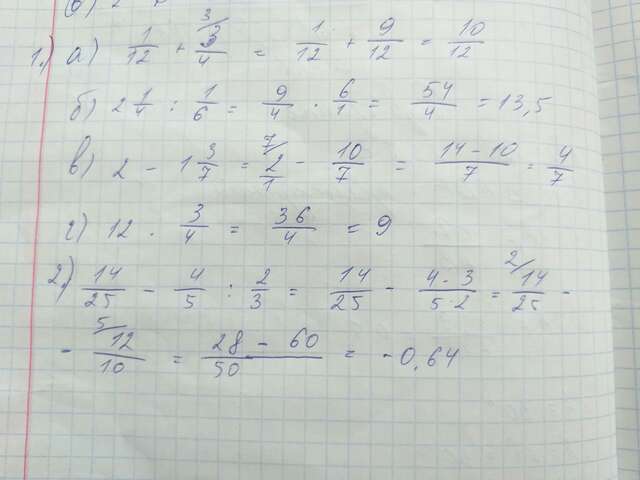 1.) а) 1/12 + 3/ 3/4 = 1/12 + 9/12 = 10/12
б) 2 1/4 : 1/6 = 9/4 · 6/1 = 54/4 = 13,5
в) 2 - 1 3/7 = 7/ 2/1 - 10/7 = 14-10/7 = 4/7
г) 12 · 3/4 = 36/4 = 9
2.) 14/25 - 4/5 : 2/3 = 14/25 - 4·3/5·2 = 2/ 14/25 -
- 5/ 12/10 = 28 - 60/50 = -0,64